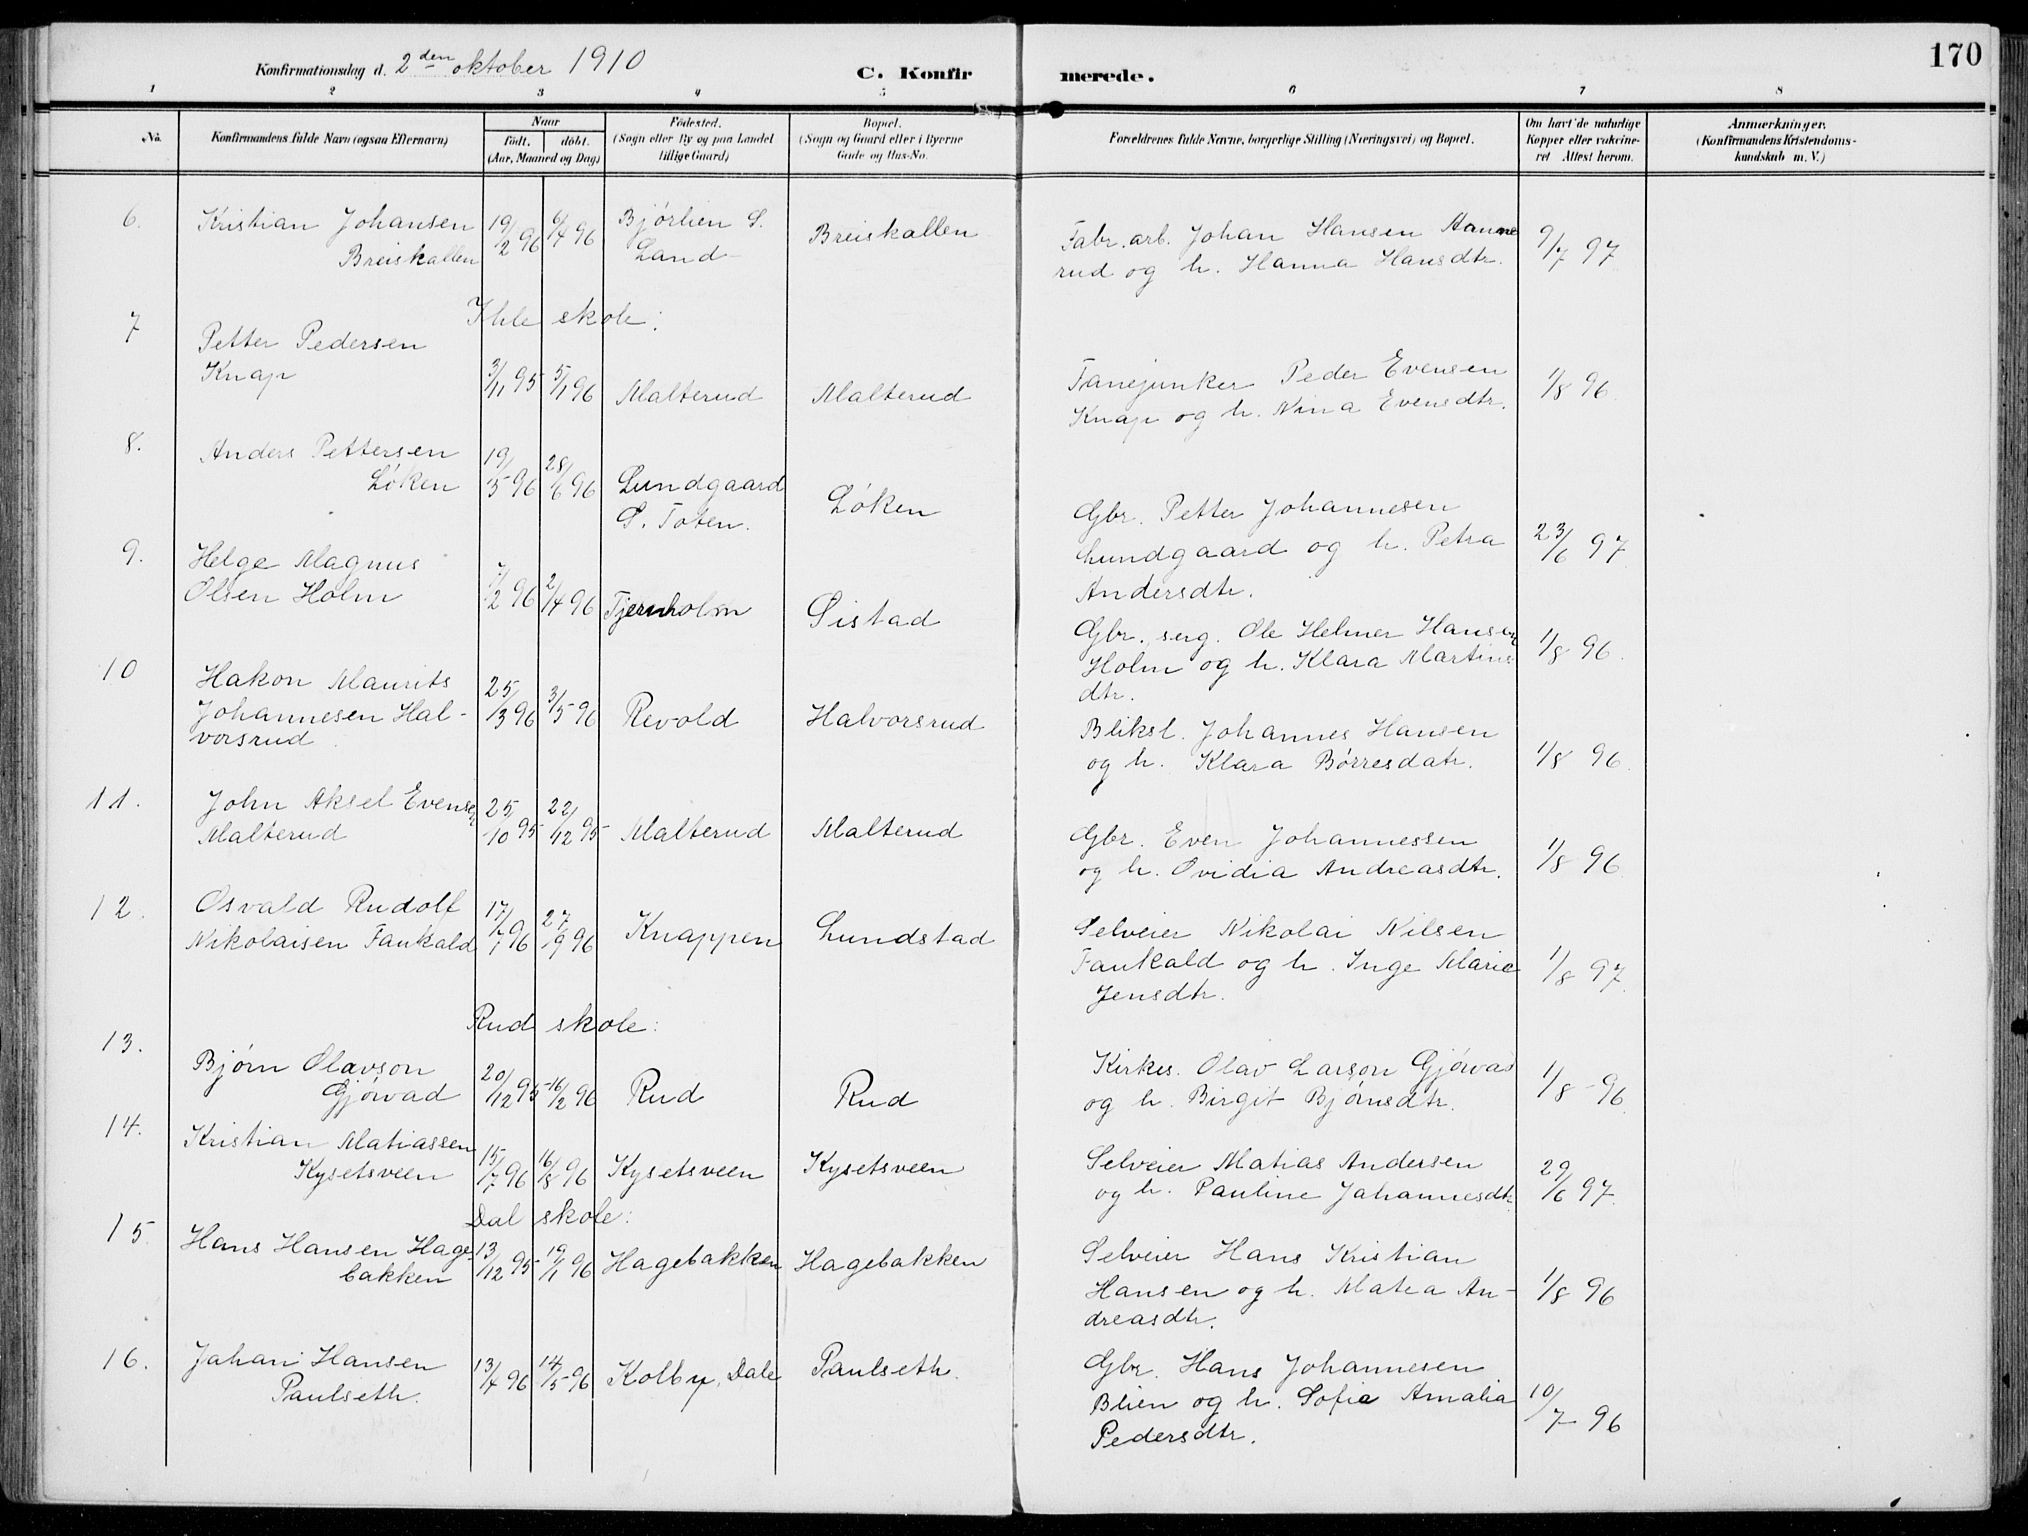 170
Konfirmationsdag d. 2den oktober 1910
C. Konfirmerede.
1 2 3 4 5 6 7 8
No.
Konfirmandens fulde Navn (ogsaa Efternavn)
Naar
født. døbt.
(Aar, Maaned og Dag)
Fødested.
(Sogn eller By og paa Landet
tillige Gaard)
Bopæl.
(Sogn og Gaard eller i Byerne
Gade og Hus-No.
Forældrenes fulde Navne, borgerlige Stilling (Næringsvei) og Bopæl.
Om havt de naturlige
Kopper eller vakcine-
ret Attest herom.
Anmærkninger.
(Konfirmandens Kristendoms-
kundskab m. V.)
6. Kristian Johansen 19/2 96 6/4 96 Bjørlien S. Breiskallen Fabr. arb. Johan Hansen Aanne 9/7 97
Breiskallen Land rud og h. Hanna Hansdtr.
Ihle skole:
7 Petter Pedersen
Knap 3/11 95 5/1 96 Malterud Malterud Fanejunker Peder Evensen 1/8 96
Knap og h. Nina Evensdtr.
8. Anders Pettersen
Løken 19/5 96 28/6 96 Lundgaard Løken Gbr. Petter Johannesen 23/6 97
S. Toten. Lundgaard og h. Petra
Andersdtr.
9. Helge Magnus
Olsen Holm 7/2 96 2/4 96 Tjernholm Sistad Gbr. serg. Ole Helmer Hansen 1/8 96
Holm og h. Klara Martins
dtr.
10 Hakon Maurits
Johannesen Hal- 25/3 96 3/5 96 Revold Halvorsrud Bliksl. Johannes Hansen
vorsrud og h. Klara Børresdatr. 1/8 96
11. John Aksel Evensen 25/10 95 22/12 95 Malterud Malterud Gbr. Even Johannessen 1/8 96
Malterud og h. Ovidia Andreasdtr.
12. Osvald Rudolf 17/7 96 27/9 96 Knappen Lundstad Selveier Nikolai Nilsen 1/8 97
Nikolaisen Faukald Faukald og h. Inge Marie
Jensdtr.
Rud skole:
13. Bjørn Olavson 20/12 95 16/2 96 Rud Rud Kirkes. Olav Larson Gjøvad 1/8 96
Gjøvad og h. Birgit Bjørnsdtr.
14. Kristian Matiassen 15/7 96 16/8 96 Kysetsveen Kysetsveen Selveier Matias Andersen 29/6 97
Kysetsveen og h. Pauline Johannesdtr
Dal skole:
15. Hans Hansen Hage- 13/12 95 19/1 96 Hagebakken Hagebakken Selveier Hans Kristian 1/8 96
bakken Hansen og h. Matea An-
dreasdtr.
16. Johan Hansen 13/4 96 14/5 96 Kolby, Dale Paulseth. Gbr. Hans Johannesen 10/7 96
Paulseth. Blien og h. Sofie Amalia
Pedersdtr.